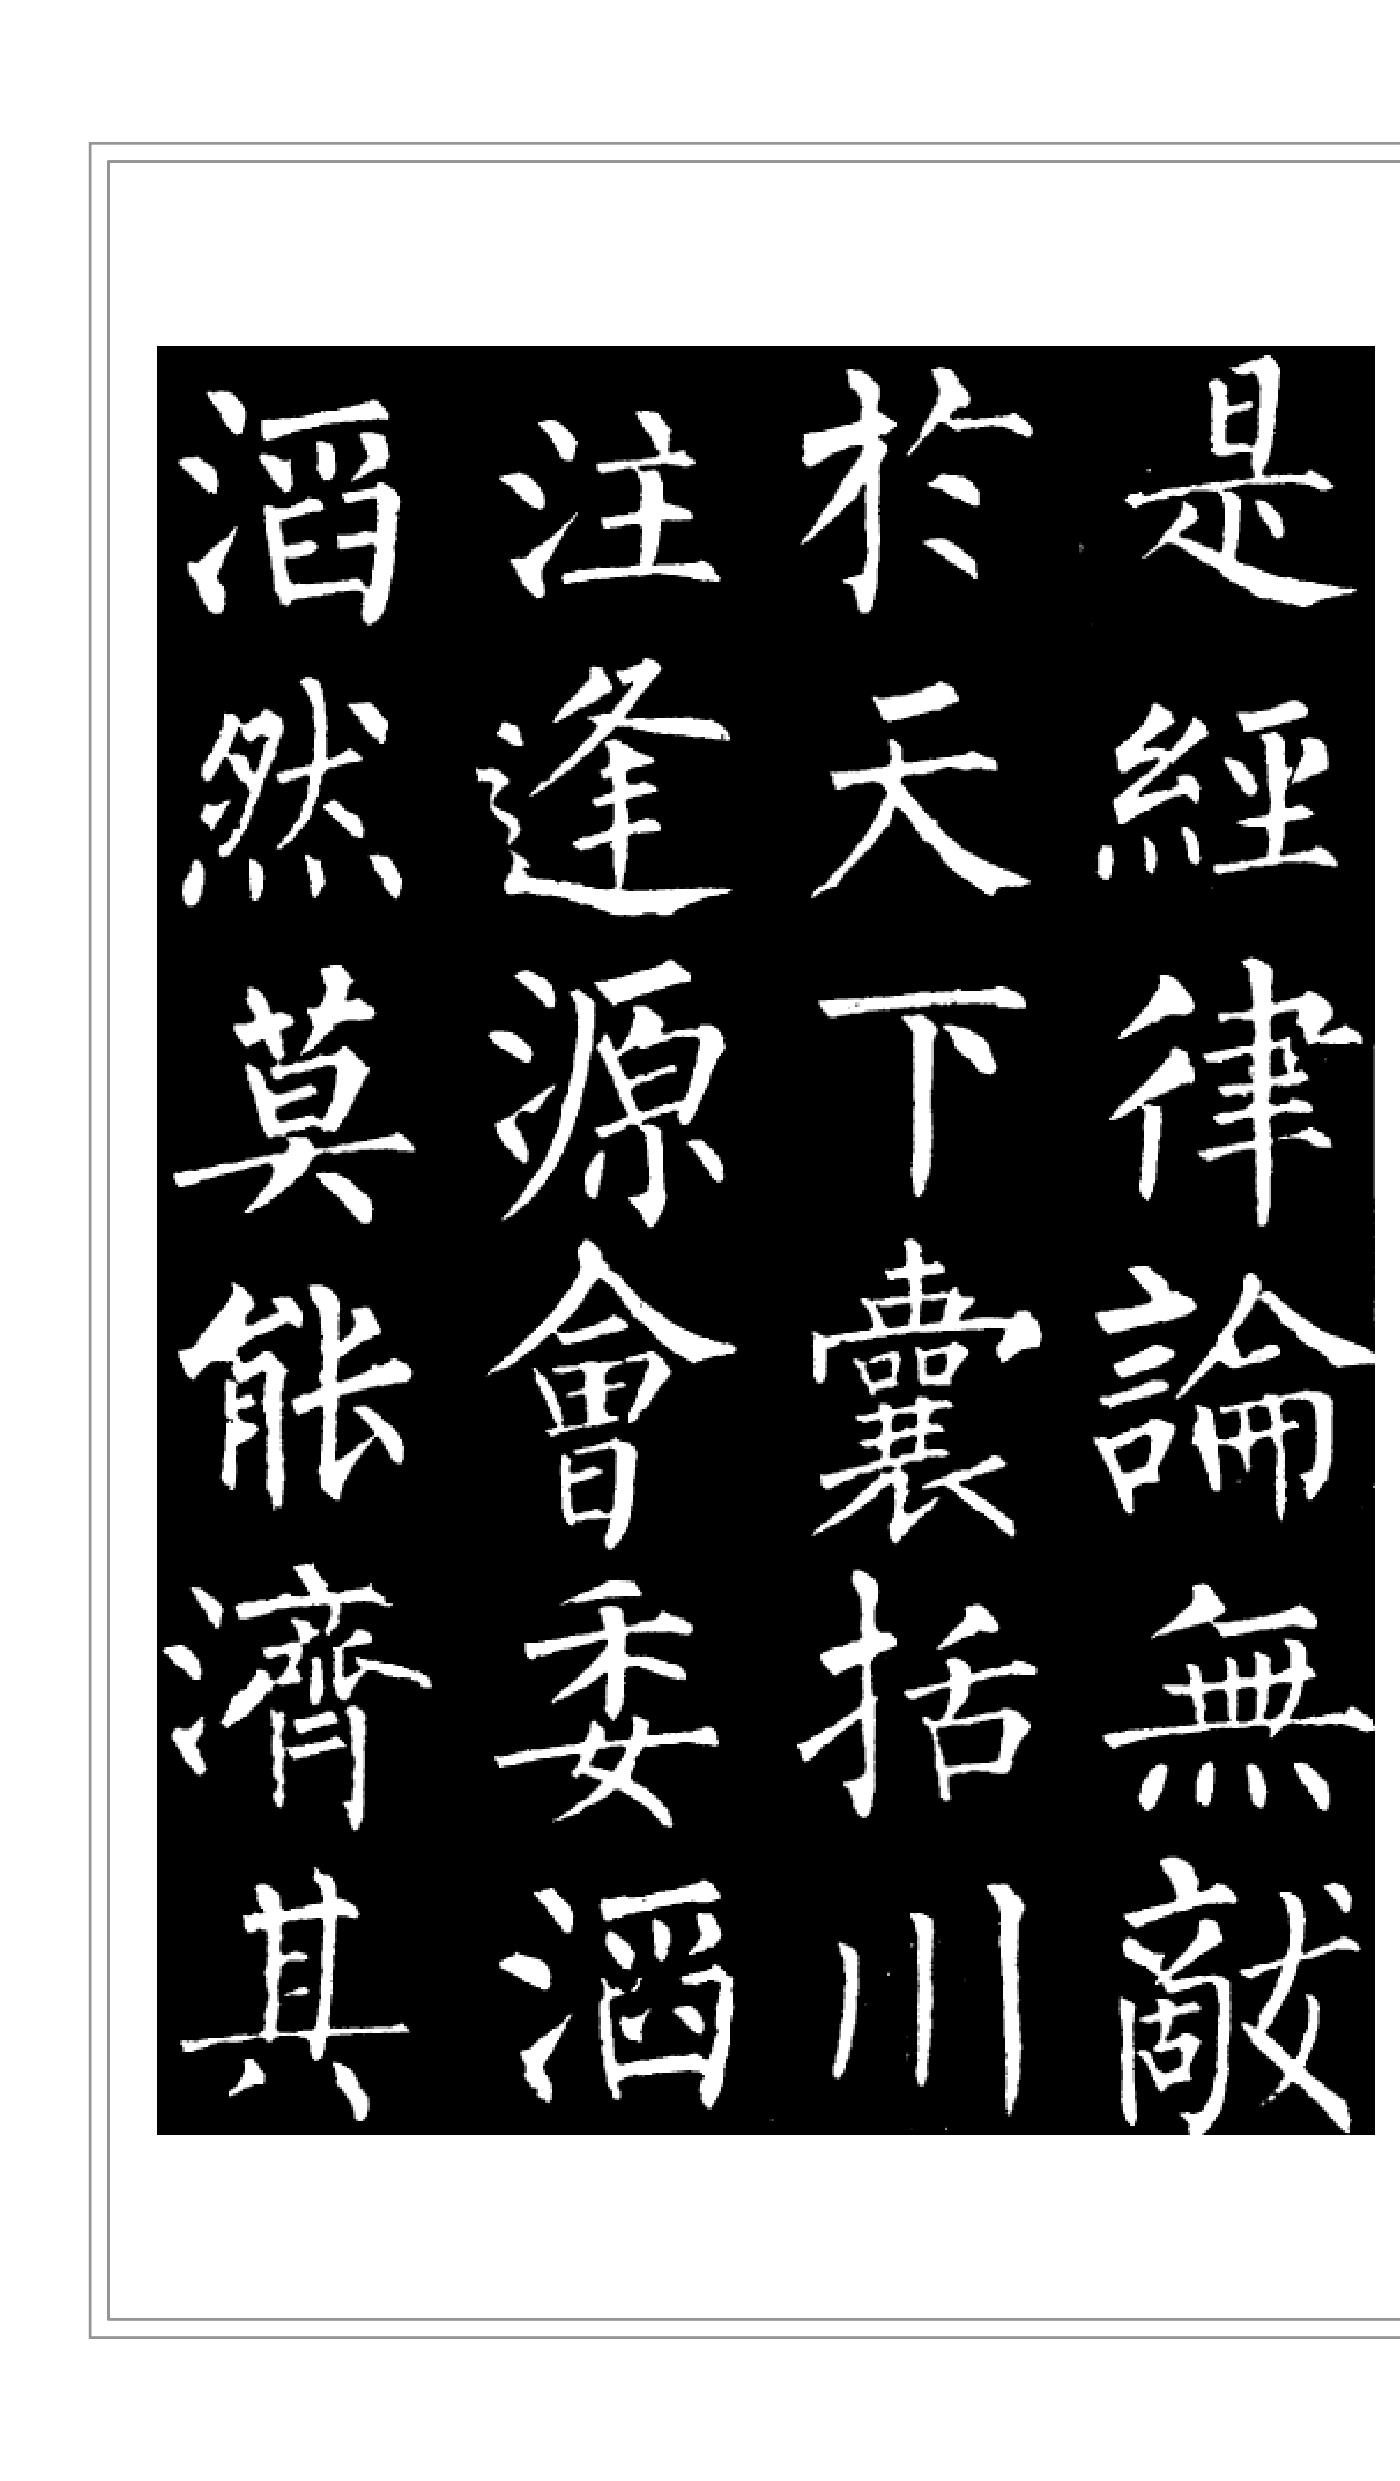 是經律論無敵
於天下囊括川
注逢源會委滔
滔然莫能濟其